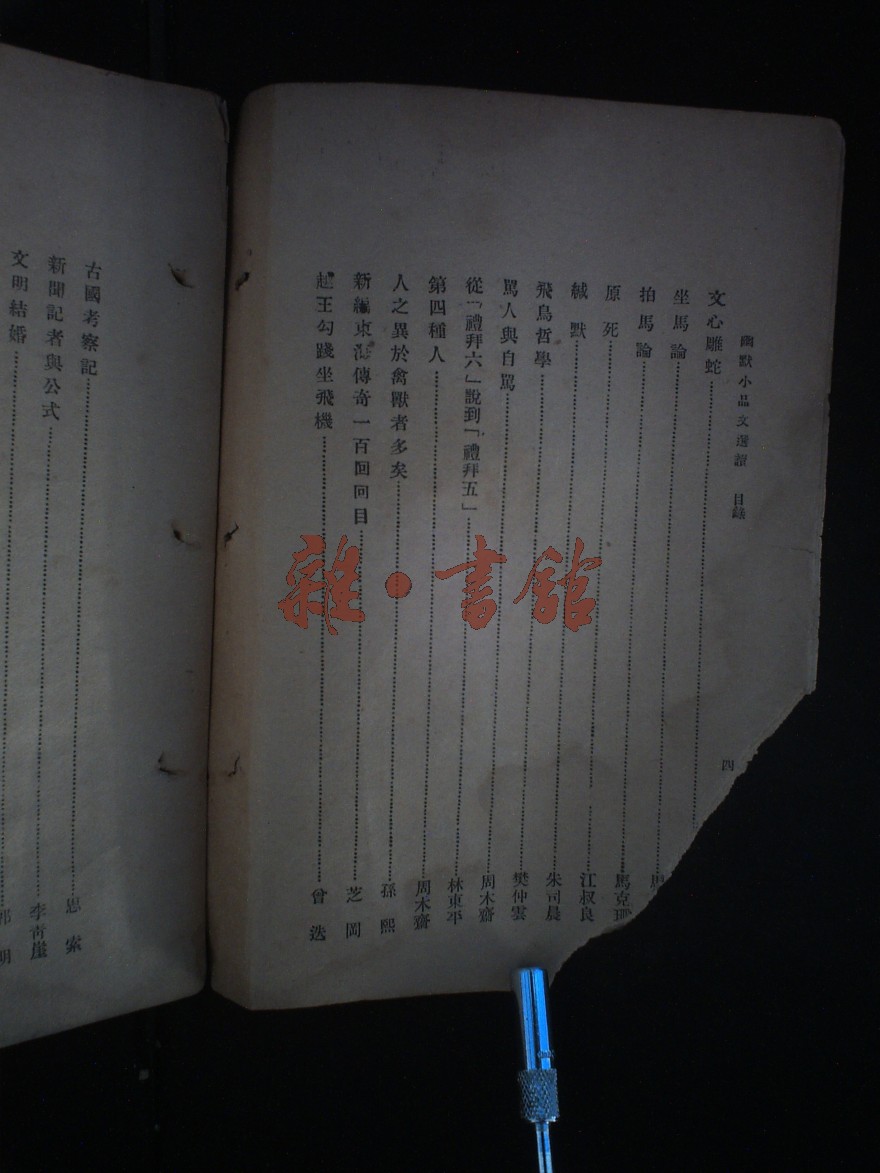 幽默小品文選讀 目錄
四
文心雕蛇
坐馬論
拍馬論 馬克
原死 江叔良
緘默 朱司晨
飛鳥哲學 樊仲雲
罵人與自罵 周木齋
從「禮拜六」說到「禮拜五」 林東平
第四種人 周木齋
人之異於禽獸者多矣 孫熙
新編東傳奇一百回回目 芝岡
越王勾踐坐飛機 曾迭
古國考察記 思索
新聞記者與公式 李青崖
文明結婚 明
雜·書館